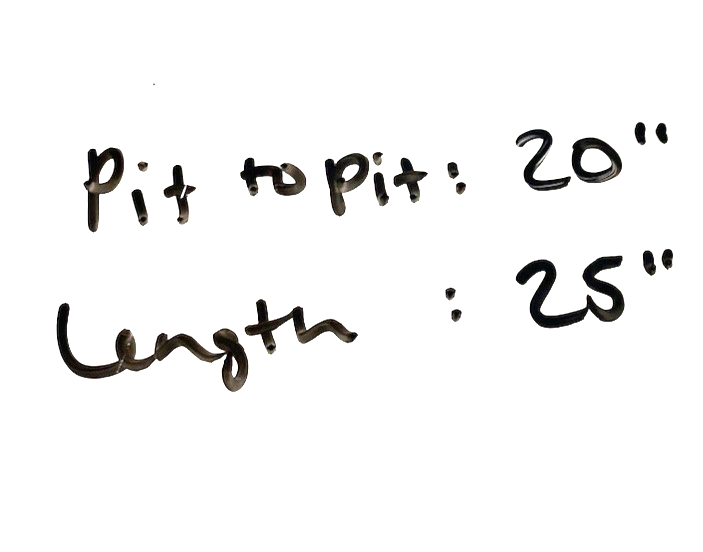 Pit to pit: 20"
Length : 25"